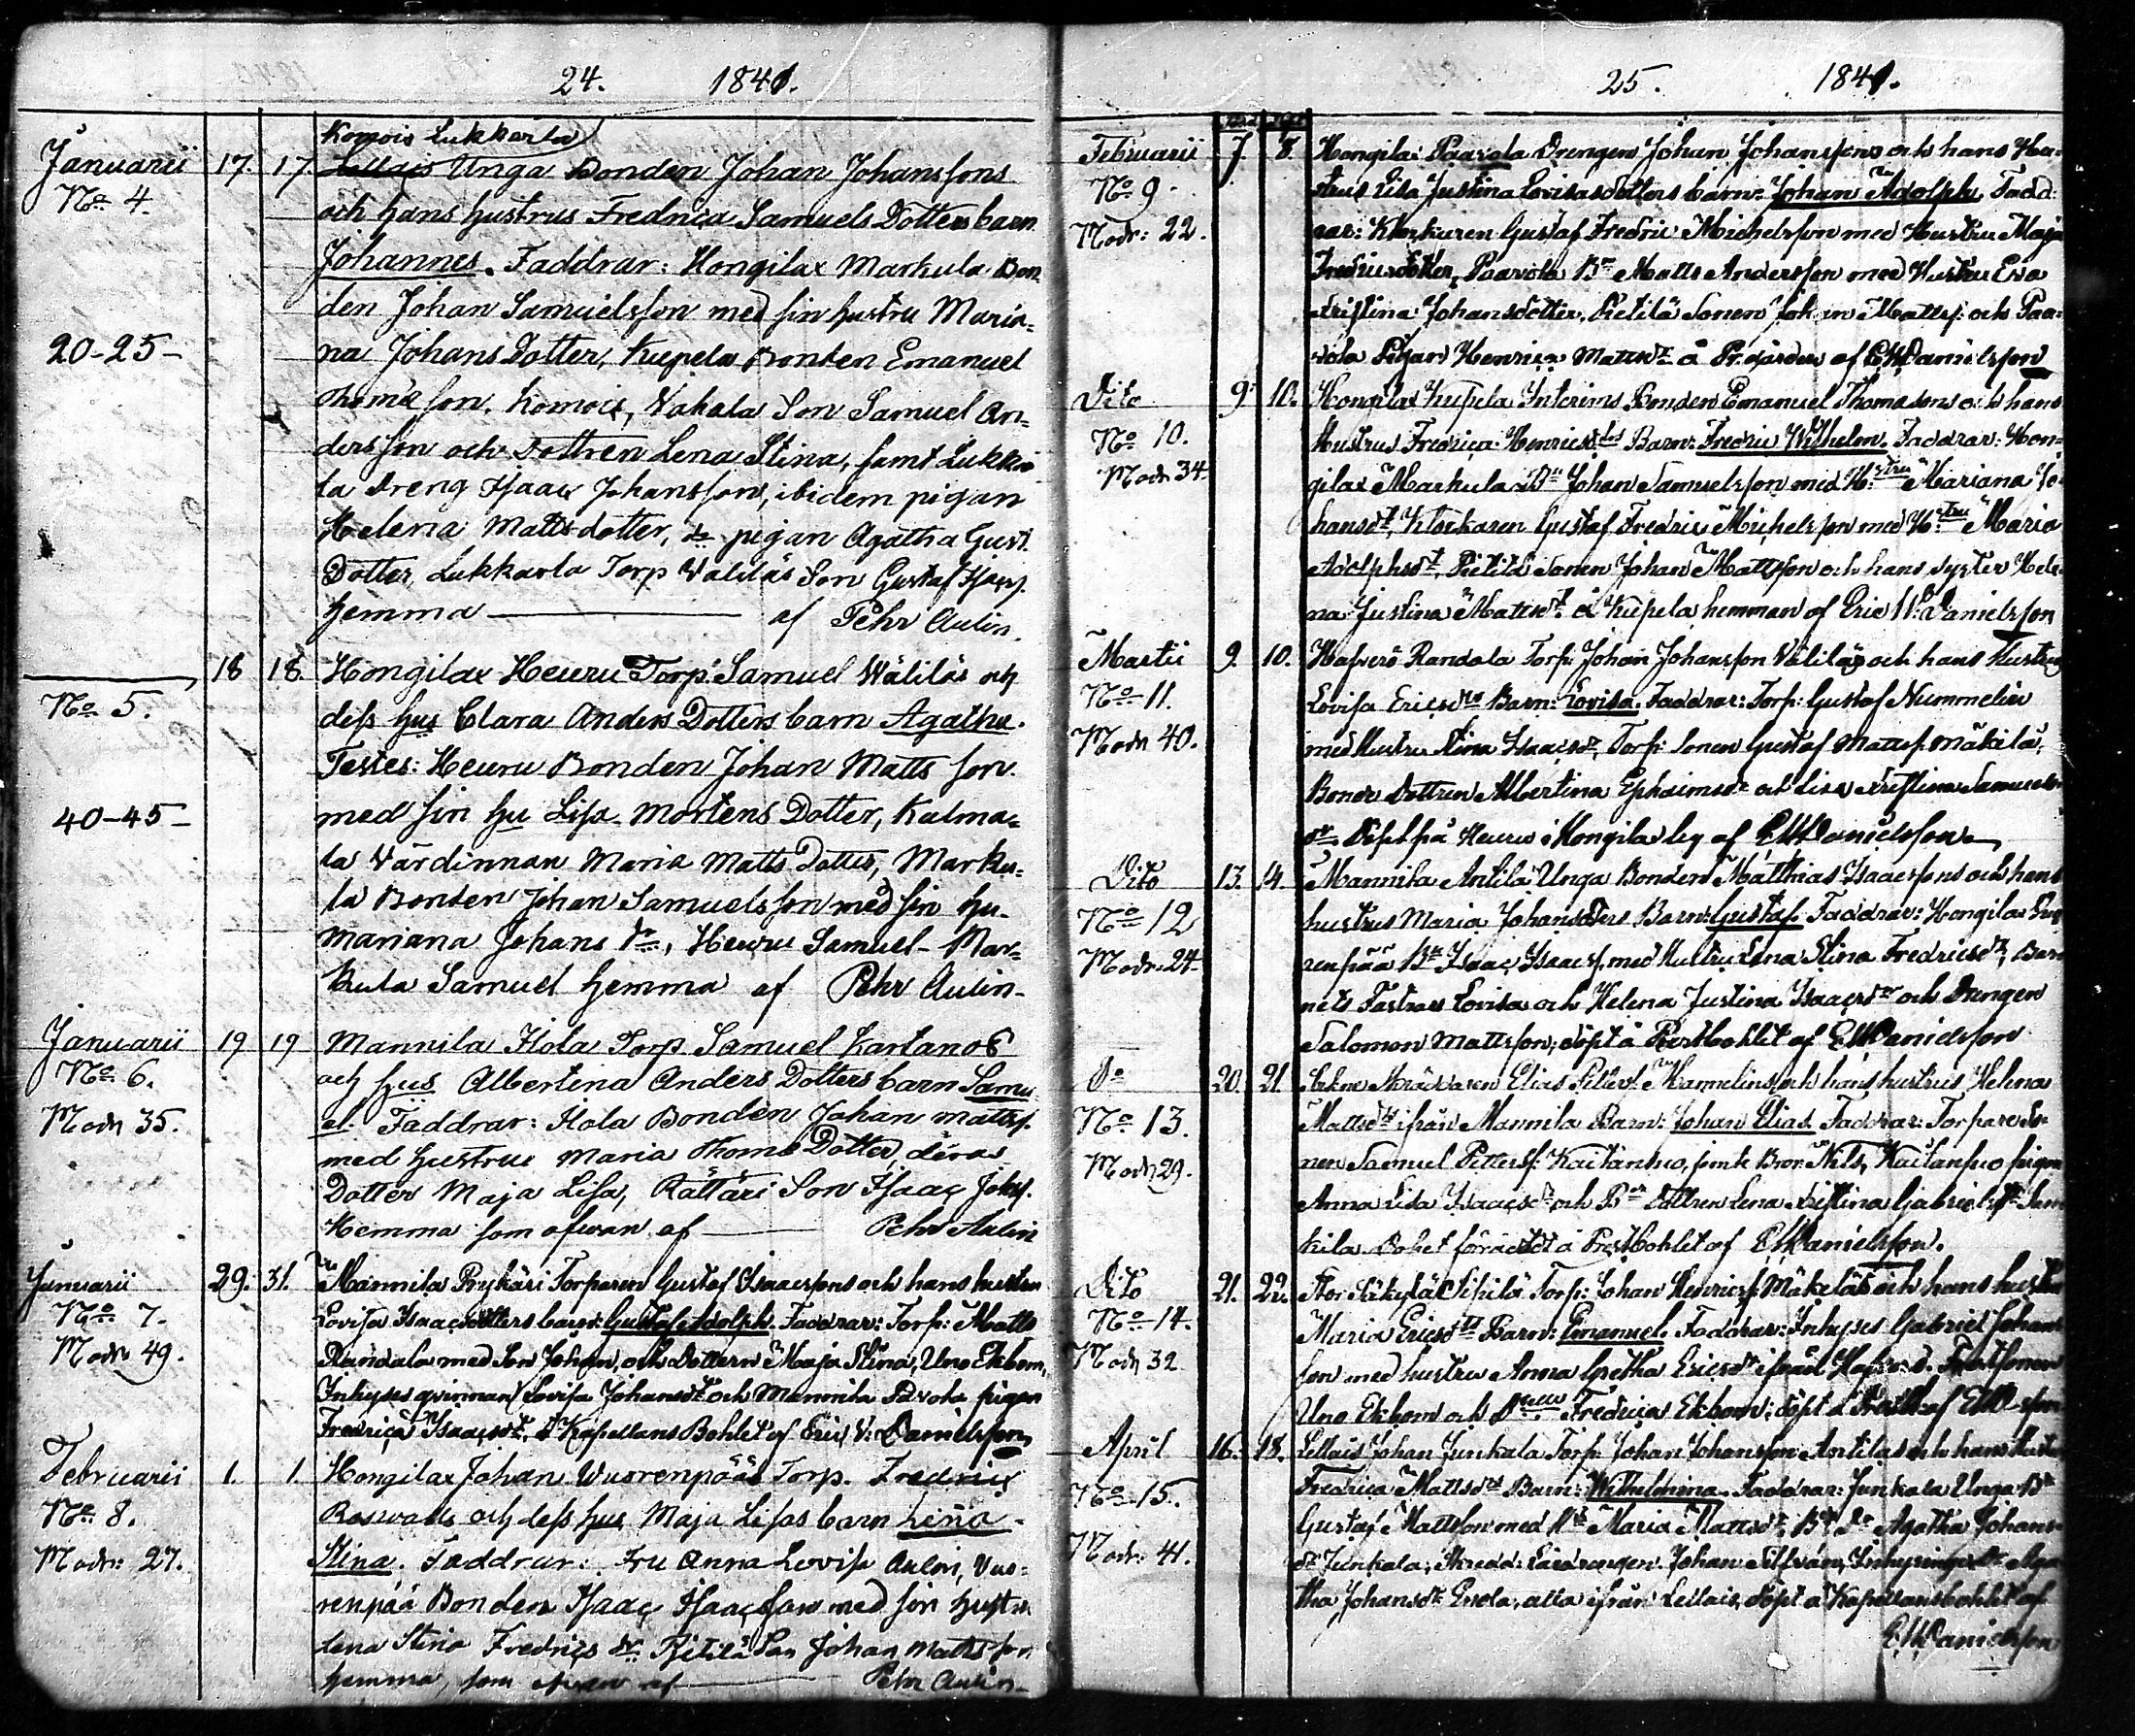 24. 1841.
Komois Lukkarla
Januarii 17. 17. Lellais Unga Bonden Johan Johanssons
No 4. och hans hustrus Fredrica Samuels Dotters barn
Johannes. Faddrar: Hongilax Markula Bon
den Johan Samuelsson med sin hustru Maria=
20-25- na Johans Dotter, Kupela Bonden Emanuel
Thomæson, Komois, Vahala Son Samuel An=
dersson och Dottren Lena Stina, samt Lukka
la Dreng Isaac Johansson, ibidem pigan
Helena Mattsdotter, pigan Agatha Gust.
Dotter, Lukkarla Torp Välilös Son Gustaf Isacs.
hemma af Pehr Aulin.
18 18. Hongilax Heuru Torp. Samuel Wälilös och
No 5. dess hus Clara Anders Dotters barn Agatha.
Testes: Heuru Bonden Johan Matts son
40-45- med sin hu Lisa Mortens Dotter, Kulma=
la Värdinnan Maria Matts Dotter, Marku=
la Bonden Johan Samuelsson med sin hu-
Mariana Johans dr, Heuru Samuel Mar=
kula Samuel hemma af Pehr Aulin-
Januarii 19 19 Mannila Hola Torp. Samuel Kartanos
No 6. och hus Albertina Anders Dotters barn Samu
Modr 35. el. Faddrar: Hola Bonden Johan Mattss.
med hustrue Maria Thoms Dotter, deras
Dotter Maja Lisa, Rättäri Son Isaac Johss.
Hemma som ofwan af Pehr Aulin
Januarii 29. 31. Mannila Prykäri Torparen Gustaf Isaacssons och hans hustru
No 7. Lovisa Isaacsdotters barn: Gustaf Adolph. Faddrar: Torp: Matts
Modr 49. Randala med Son Johan, och Dottern Maja Stina, Uno Ekbom,
Inhyses qvinnan Lovisa Johansdr och Mannila pigan
Fredrica Isaacsdr, å Kapellans Bohlet af Eric W: Danielsson
Februarii 1. 1. Hongilax Johan Wuorenpään Torp. Fredric
No 8. Roswalls och dess hus Maja Lisas barn Lena
Modr: 27. Stina. Faddrar: Fru Anna Lovisa Aulin, Vuo=
renpää Bonden Isaac Isaacsson med sin hustru
Lena Stina Fredrics dr. Pietilä Son Johan Matts son
hemma, som ofwan af Pehr Aulin-
25. 1841.
Februarii 7. 8. Hongilax Paavola Drengen Johan Johanssons och hans Hu=
No 9. strus Lisa Justina Lovisasdotters barn: Johan Adolph. Fadd
Modr: 22. rar: Klockaren Gustaf Fredric Michelsson med Hustru Maja
Fredricsdotter, Paavola Bn Matts Andersson med Hustru Eva
Kristina Johansdotter, Pietilä Sonen Johan Mattss: och Paa=
vola Pigan Henrica Mattsdr å Pr.gården af EWDanielsson
Dito 9. 10. Hongilax Kupela Interims Bonden Emanuel Thomasons och hans
No 10. Hustrus Fredrica Henricsdrs Barn: Fredric Wilhelm. Faddrar: Hon=
Modr 34. gilax Markula Bn Johan Samuelsson med Hstru Mariana Jo=
hansdr, Klockaren Gustaf Fredric Michelsson med Hstru Maria
Adolphsdr, Pietilä Sonen Johan Mattsson och hans syster Hele
na Justina Mattsdr å Kupela hemman af Eric W: Danielsson
Martii 9. 10. Hafverö Randala Torp: Johan Johansson Välilös och hans Hustrus
No 11. Lovisa Ericsdrs Barn: Lovisa. Faddrar: Torp: Gustaf Nummelin
Modr 40. med Hustru Stina Isaacsdr, Torp: Sonen Gustaf Mattss. Mäkilä,
Bonde Dottren Albertina Ephraimsdr och Lisa Kristina Samuels
dr. Döpt på Heuru i Hongilax by af EWDanielsson
Dito 13. 14. Mannila Antila Unga Bonden Matthias Isaacssons och hans
No 12 hustrus Maria Johansdrs Barn: Gustaf. Faddrar: Hongilax
Modr. 24- renpää Bn Isaac Isaacss. med Hustru Lena Stina Fredricsdr, Bar
nets Fastrar Lovisa och Helena Justina Isaacsdr och Drengen
Salomon Mattsson, döpt å Prestbohlet af EWDanielsson
Do 20. 21 Elias Petterss: Hannelins och hans hustrus Helena
No 13. Mattsdrs ifrån Mannila Barn: Johan Elias. Faddrar: Torpare So=
Modr 29. nen Samuel Petterss: Kaitansuo, Bror Nils, Kaitansuo pigan
Anna Lisa Isaacsdr och Bn Dottren Lena Kristina Gabrielsdr
kila Dopet förrättadt å Prestbohlet af EWDanielsson.
Dito 21. 22. Stor Säkylä Sipilä Torp: Johan Henricss: Mäkeläs och hans hustrus
No 14. Maria Ericsdrs Barn: Emanuel. Faddrar: Inhyses Gabriel Johans
Modr 32 son med hustru Anna Gretha Ericsdr ifrån
Uno Ekbom och Fredrica Ekbom; döpt å Prestb: af EWD-sson
April 16. 18. Lellais Johan Junkala Torp: Johan Johansson Antilas och hans Hustrus
No 15. Fredrica Mattsdrs Barn: Wilhelmina. Faddrar: Junkala Unga Bn
Modr: 41. Gustaf Mattsson med Hu Maria Mattsdr, Agatha Johans
dr Junkala, Johan Silfvan, Aga
tha Johansdr Enola, alla ifrån Lellais, döpt å Kapellansbohlet af
EWDanielsson